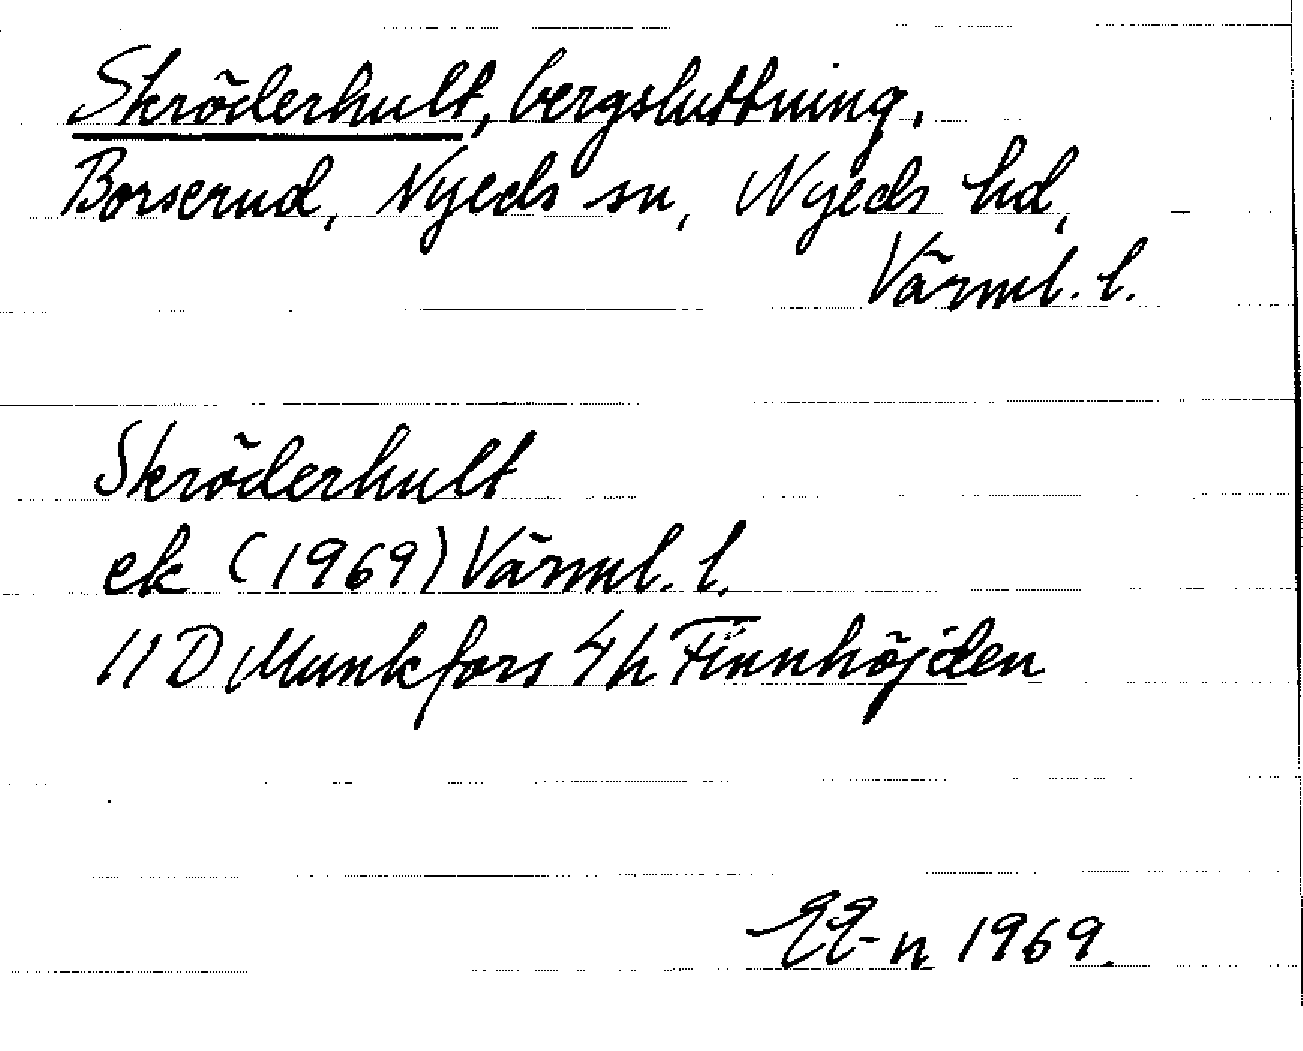 Skröderhult, bergsluttning,
Borserud, Nyeds sn, Nyeds hd,
Värml. l.
Skröderhult
ek (1969) Värml. l.
11 D Munkfors 4h Finnhöjden
EE-n 1969.